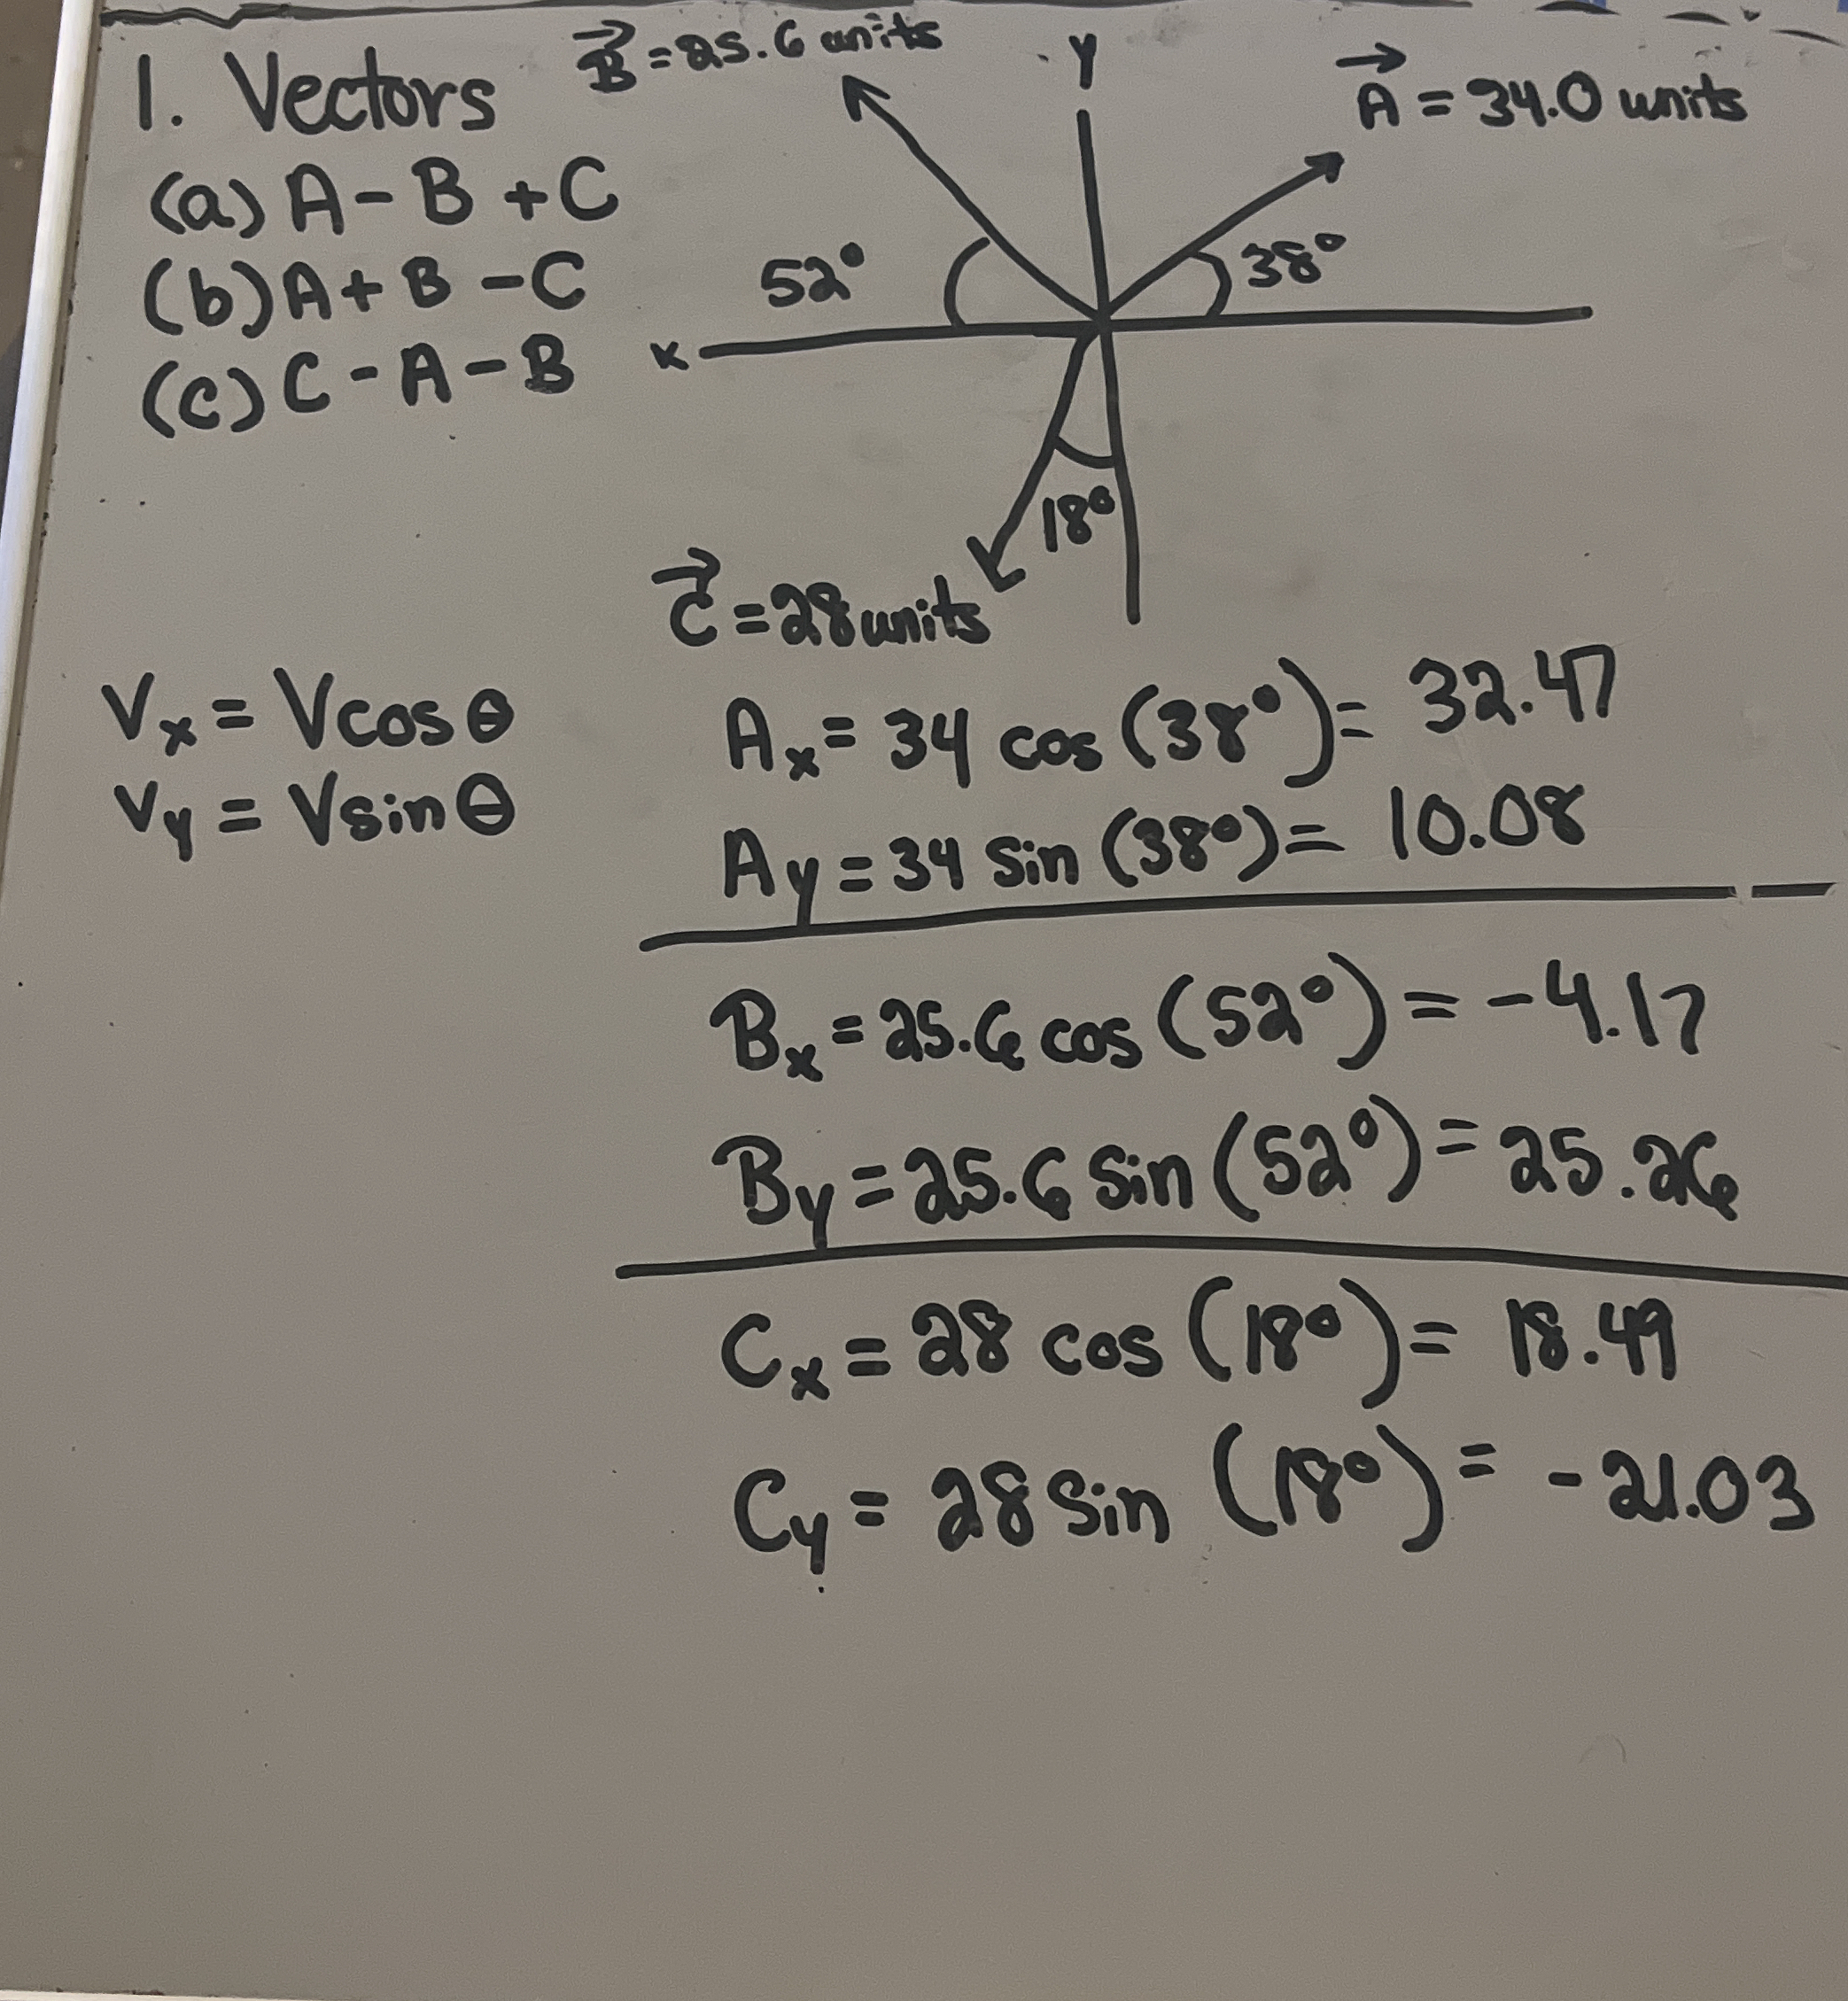 1. Vectors
(a) A - B + C
(b) A + B - C
(c) C - A - B
B⃗ = 25.6 units
Y
A⃗ = 34.0 units
52°
38°
x
18°
C⃗ = 28 units
Vx = V cos θ
Vy = V sin θ
Ax = 34 cos (38°) = 32.47
Ay = 34 sin (38°) = 10.08
Bx = 25.6 cos (52°) = -4.17
By = 25.6 sin (52°) = 25.26
Cx = 28 cos (18°) = 18.49
Cy = 28 sin (18°) = -21.03